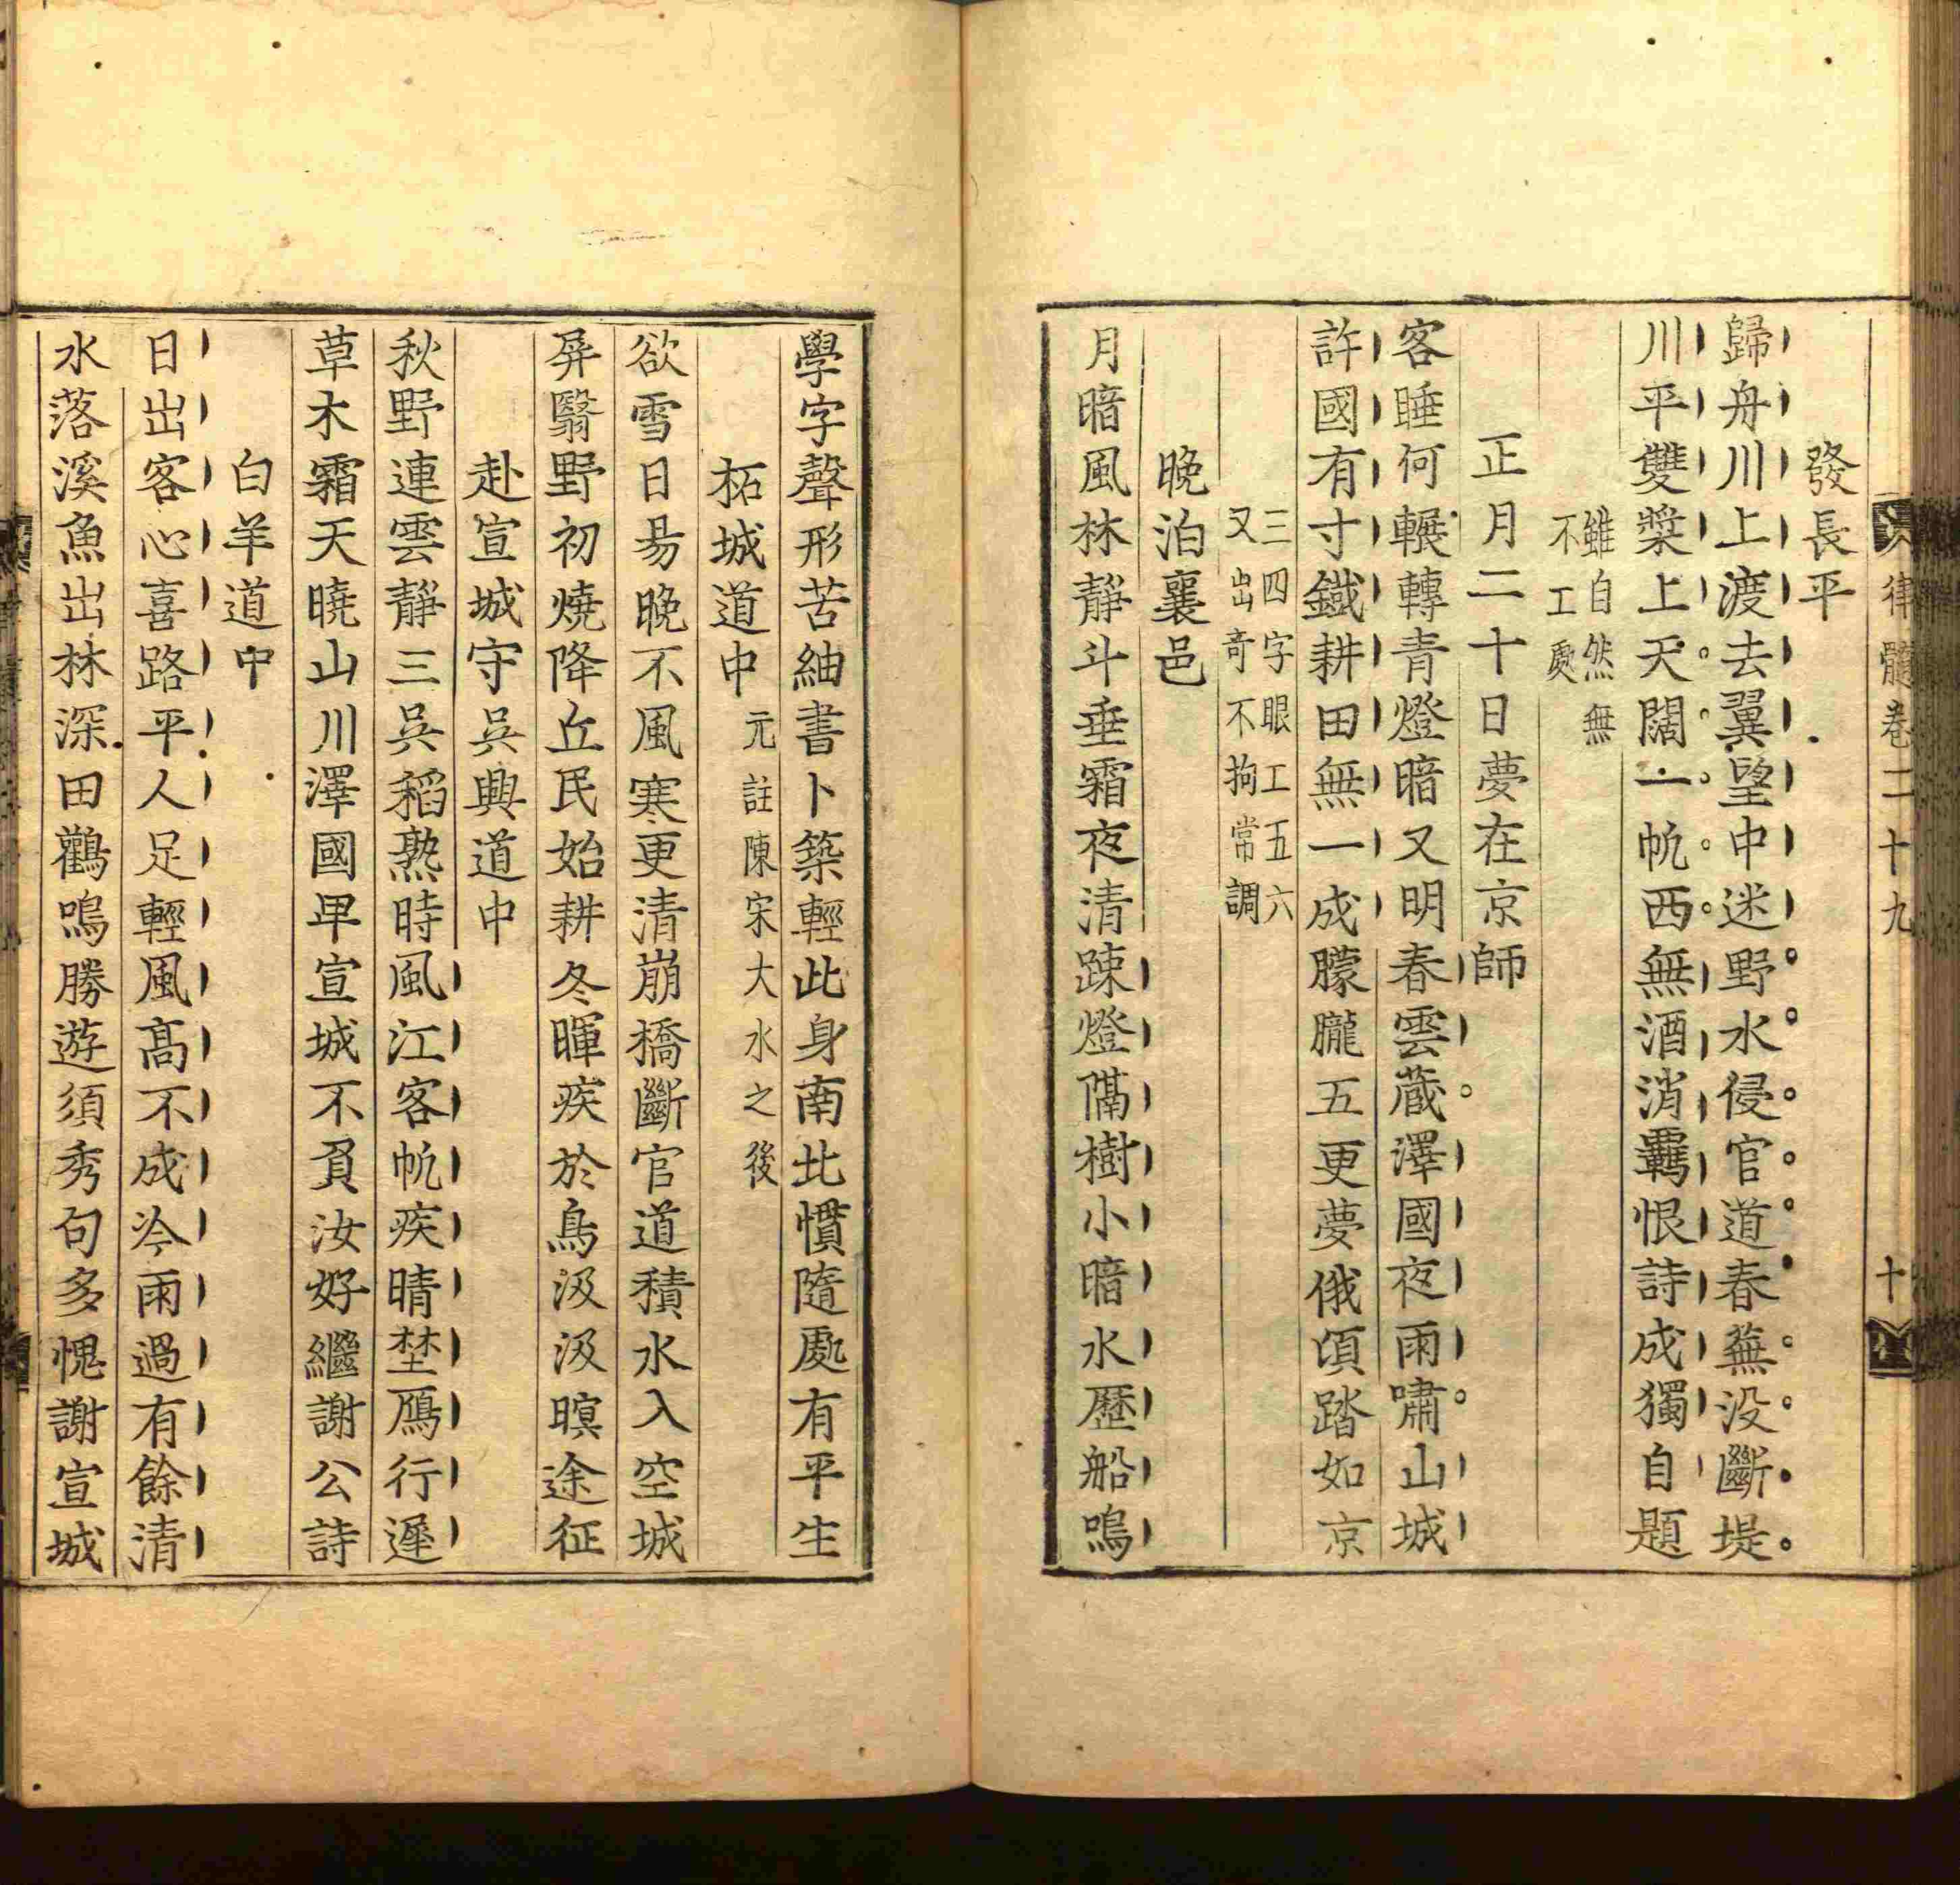 律髓卷二十九 十
發長平
歸舟川上渡去翼望中迷野水侵官道春蕪没斷堤
川平雙槳上天闊一帆西無酒消羇恨詩成獨自題
雖自然無
不工處
正月二十日夢在京師
客睡何輾轉青燈暗又明春雲藏澤國夜雨嘯山城
許國有寸鐵耕田無一成朦朧五更夢俄頃踏如京
三四字眼工五六
又出奇不拘常調
晚泊襄邑
月暗風林靜斗垂霜夜清踈燈隔樹小暗水歷船鳴
學字聲形苦紬書卜築輕此身南北慣隨處有平生
柘城道中 元註陳宋大水之後
欲雪日易晚不風寒更清崩橋斷官道積水入空城
屏翳野初燒降丘民始耕冬暉疾於鳥汲汲暝途征
赴宣城守吳興道中
秋野連雲靜三吳稻熟時風江客帆疾晴埜鴈行遲
草木霜天曉山川澤國卑宣城不負汝好繼謝公詩
白羊道中
日出客心喜路平人足輕風高不成冷雨過有餘清
水落溪魚出林深田鸛鳴勝遊須秀句多愧謝宣城